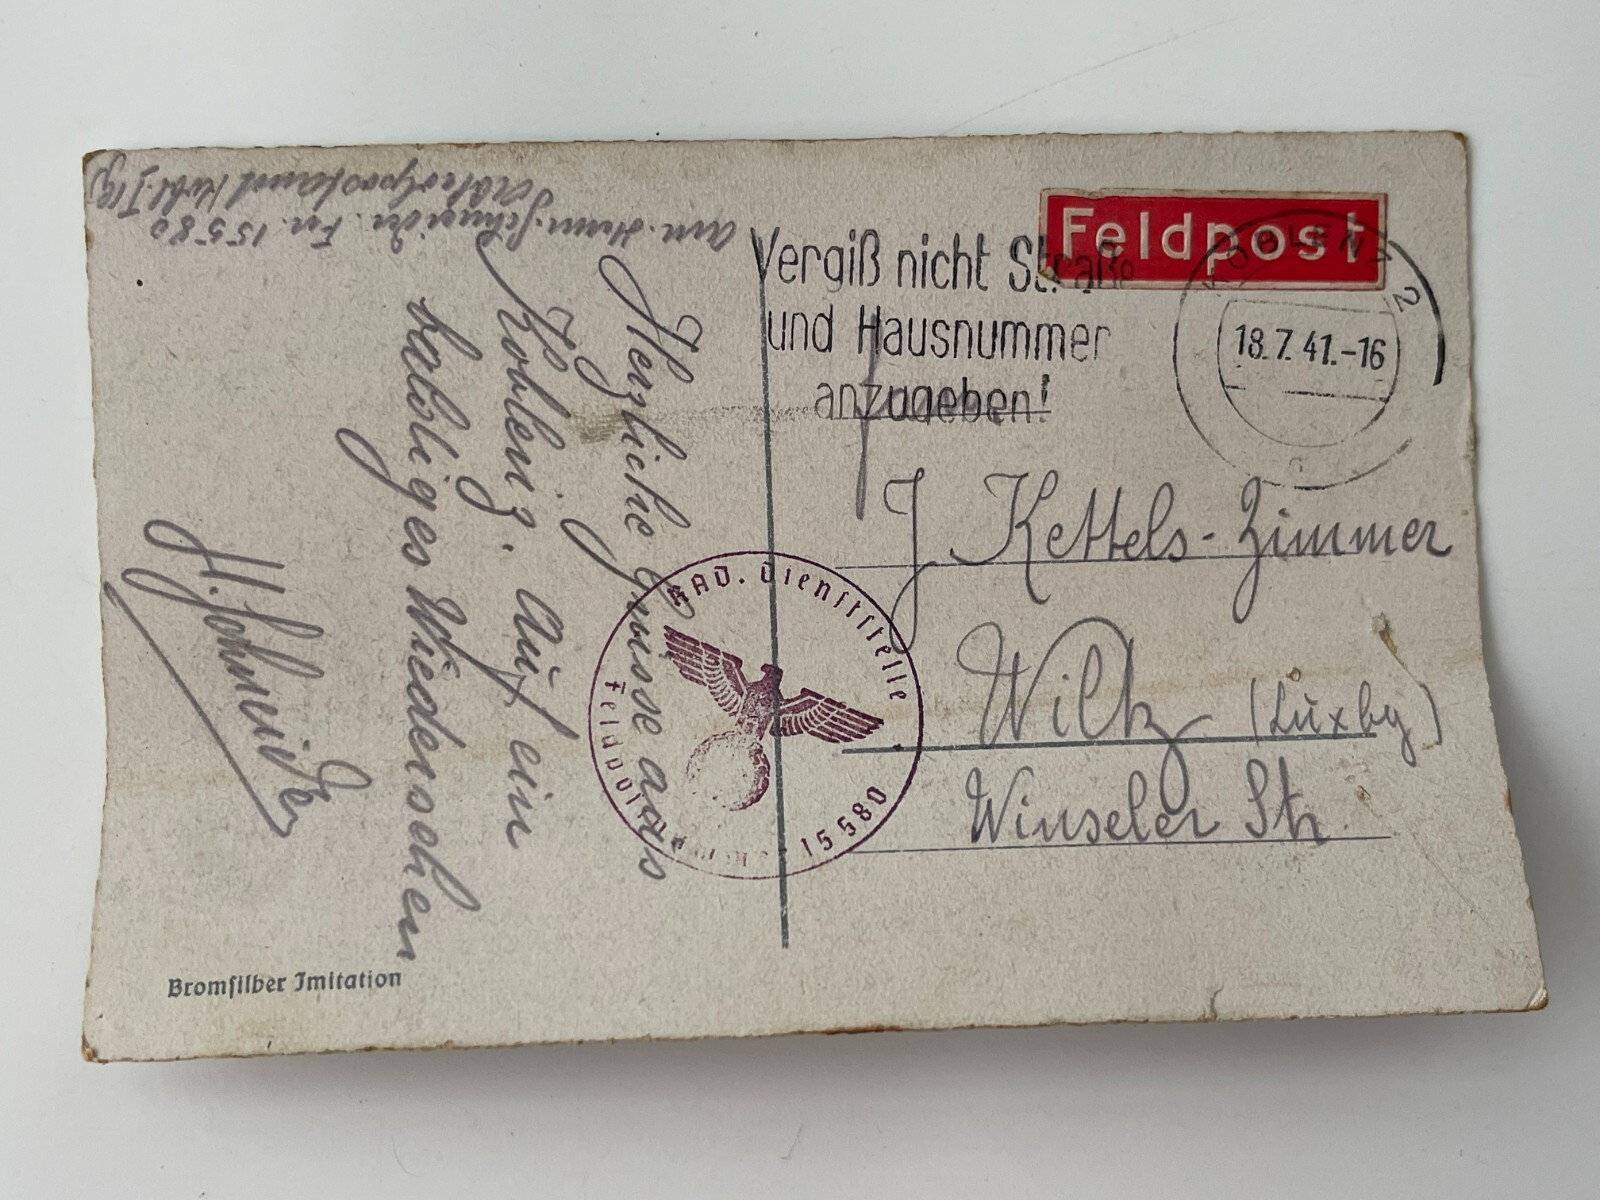 Arm. Herm. Schneider. Fn. 15580
Feldpost
KOBLENZ 2
18.7.41.-16
Vergiß nicht Straße
und Hausnummer
anzugeben!
Herzliche Grüsse aus
Koblenz. Auf ein
baldiges Wiedersehen
H. Schneider
J. Kettels-Zimmer
Wiltz (Luxbg)
Winseler Str.
RAD. Dienststelle
Feldpost 15580
Bromsilber Imitation